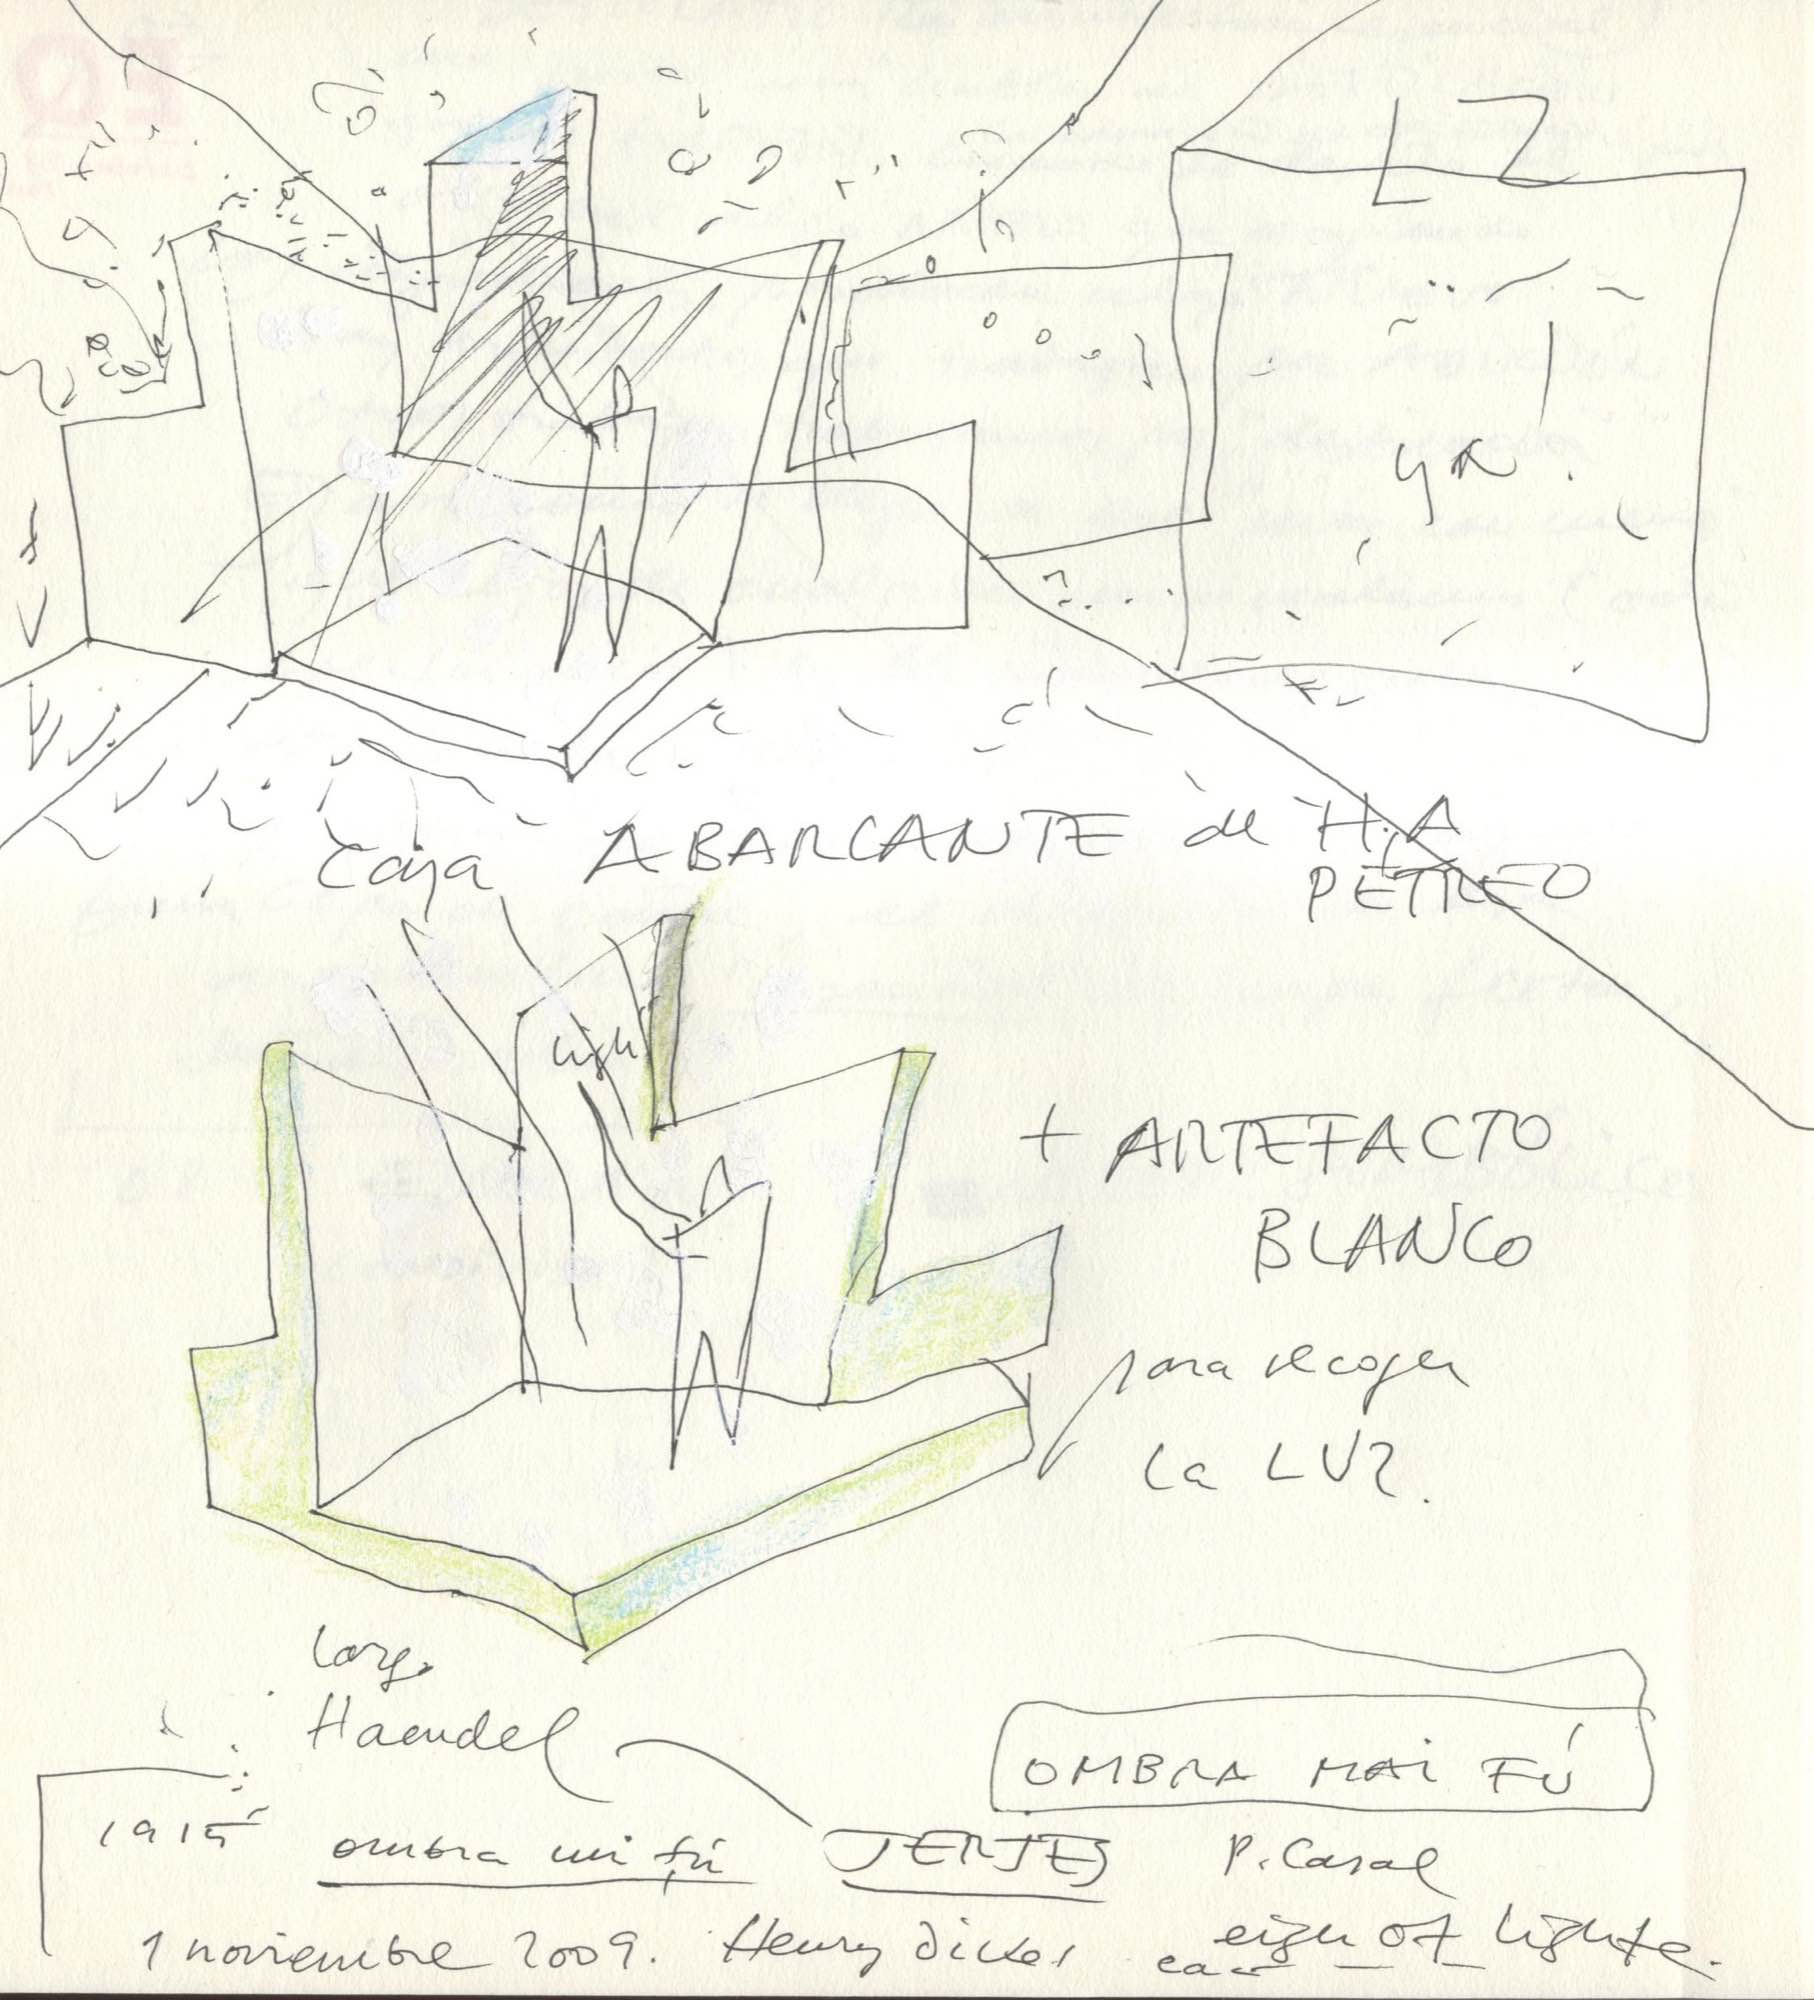 LZ
ya.
Caja ABARCANTE de H.A
PETREO
light
+ ARTEFACTO
BLANCO
para recoger
la LUZ.
Largo
Haendel
OMBRA MAI FÚ
1915
ombra mi fú JERJES P. Casal
1 noviembre 2009. Henry of lighte.